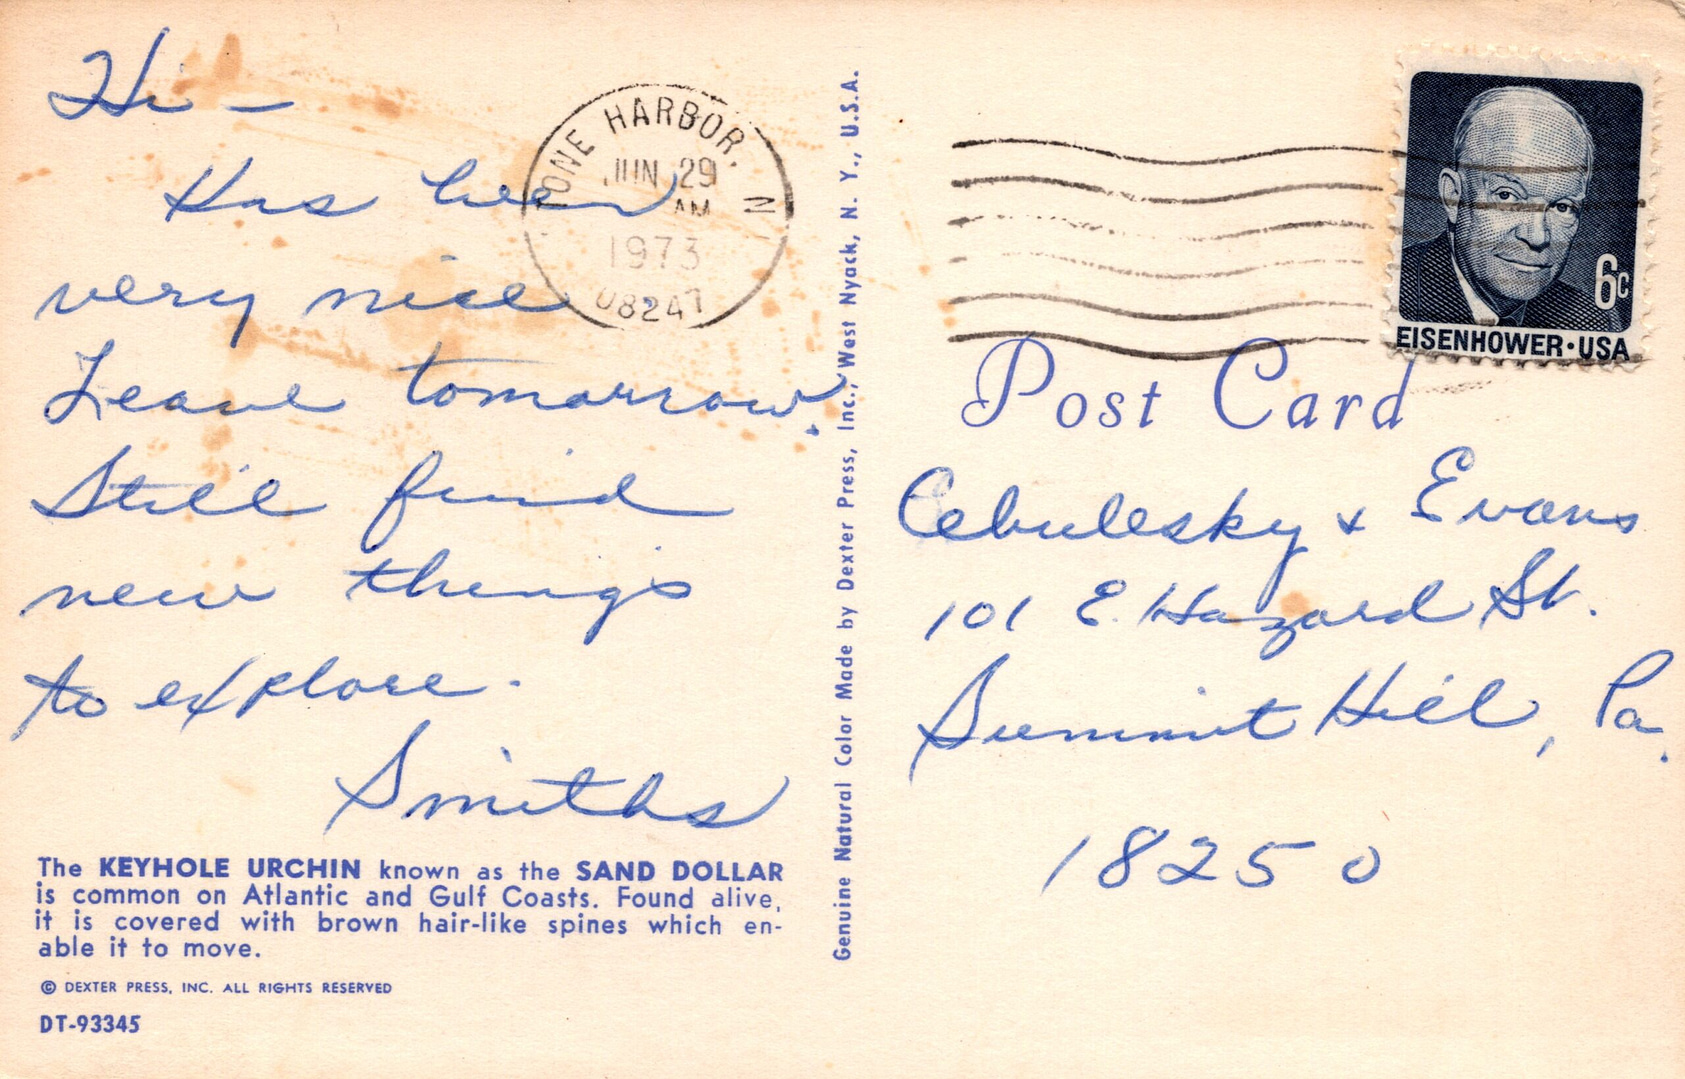 Hi -
Has been
very nice
Leave tomorrow.
Still find
new things
to explore.
Smiths
The KEYHOLE URCHIN known as the SAND DOLLAR
is common on Atlantic and Gulf Coasts. Found alive,
it is covered with brown hair-like spines which en-
able it to move.
© DEXTER PRESS, INC. ALL RIGHTS RESERVED
DT-93345
TONE HARBOR, N
JUN 29
AM
1973
08247
Genuine Natural Color Made by Dexter Press, Inc., West Nyack, N. Y., U.S.A.
6c
EISENHOWER·USA
Post Card
Cebulesky & Evans
101 E. Hazard St.
Summit Hill, Pa.
18250